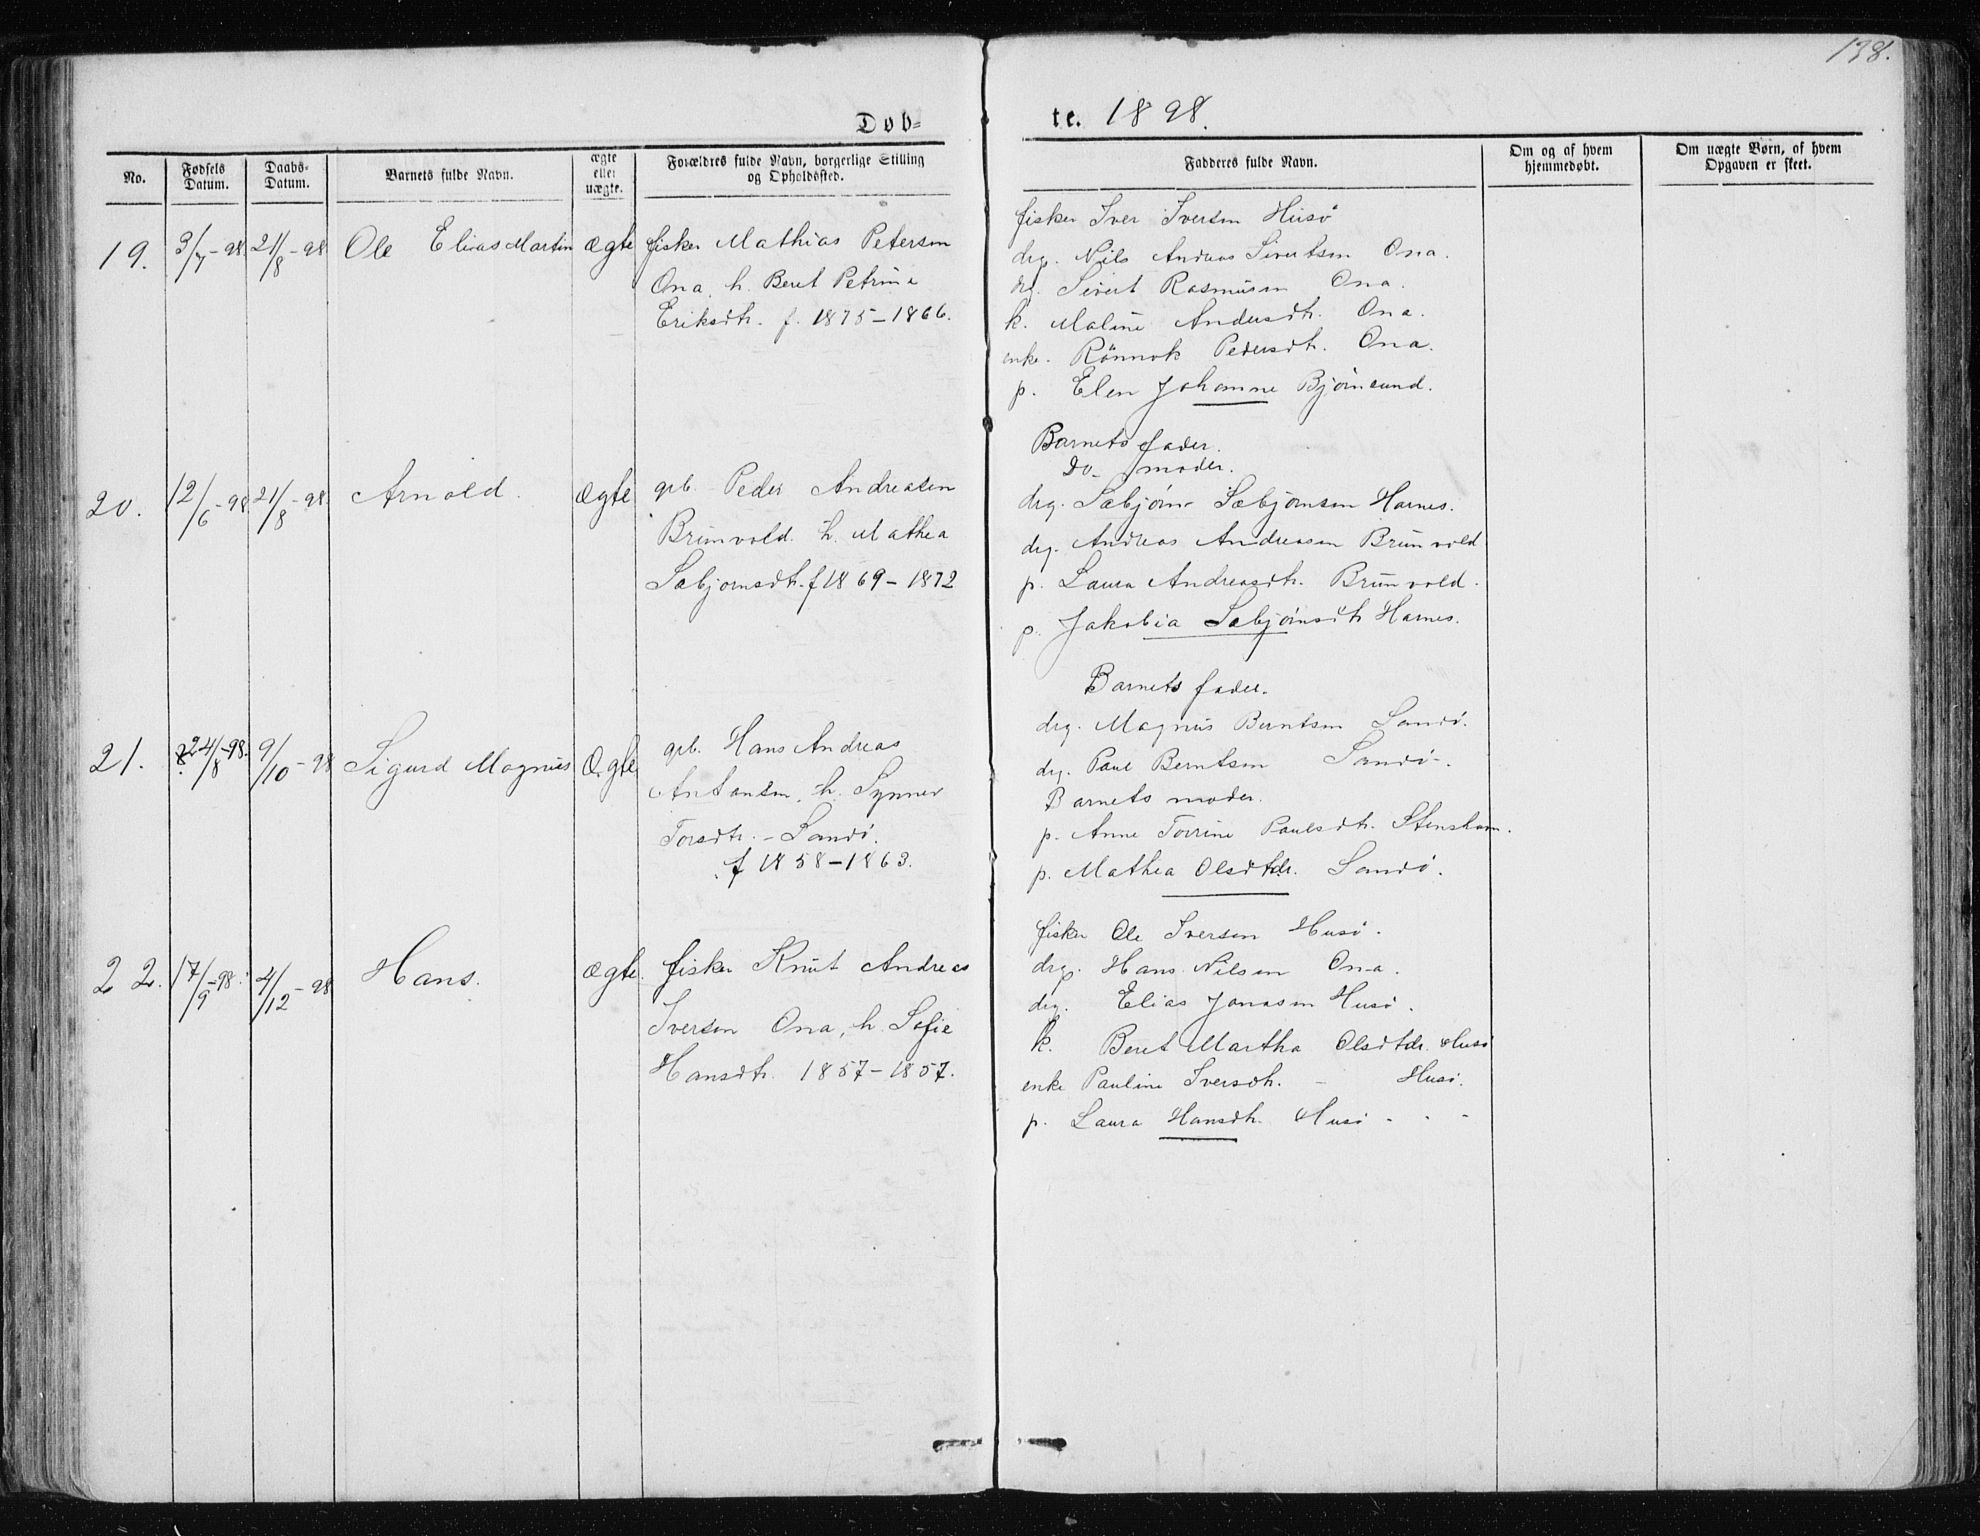 138.
Døb=
te. 1898.
No.
Fødsels Datum.
Daabs-Datum.
Barnets fulde Navn.
ægte eller uægte.
Forældres fulde Navn, borgerlige Stilling og Opholdssted.
Fadderes fulde Navn.
Om og af hvem hjemmedøbt.
Om uægte Børn, af hvem Opgaven er skeet.
19. 3/7-98. 21/8-98 Ole Elias Martin ægte fisker Mathias Petersen
Ona, h. Beret Petrine
Eriksdtr. f. 1875-1866.
fisker Iver Iversen Husø
drg. Nils Andreas Sivertsen Ona.
drg. Sivert Rasmusen Ona.
k. Maline Andersdtr. Ona.
enke. Rönnok Pedersdtr. Ona.
p. Elen Johanne Bjørnsund.
20. 12/6-98 21/8-98. Arnold. ægte grb. Peder Andreasen
Brunvold. h. Mathea
Sæbjørnsdtr. f 1869-1872
Barnets fader.
Do- moder.
drg. Sæbjørn Sæbjørnsen Harnes.
drg. Andreas Andreasen Brunvold
p. Laura Andreasdtr. Brunvold.
p. Jakobia Sæbjørnsdtr Harnes.
21. 24/8-98. 9/10-98 Sigurd Magnus Ægte grb. Hans Andreas
Antonsen, h. Synnev
Torsdtr. - Sandø.
f 1858-1863.
Barnets fader.
drg. Magnus Berntsen Sandø.
drg. Paul Berntsen Sandø-.
Barnets moder.
p. Anne Torrine Paulsdtr. Stenshavn.
p. Mathea Olsdtdr. Sandø.
22. 17/9-98. 4/12-98 Hans. ægte. fisker Knut Andreas
Iversen Ona, h. Sofie
Hansdtr. 1857-1857.
fisker Ole Iversen Husø.
drg. Hans Nilsen Ona.
drg. Elias Jonasen Husø.
k. Beret Martha Olsdtdr. Husø
enke Pauline Iversdtr. - Husø.
p. Laura Hansdtr. Husø - - -